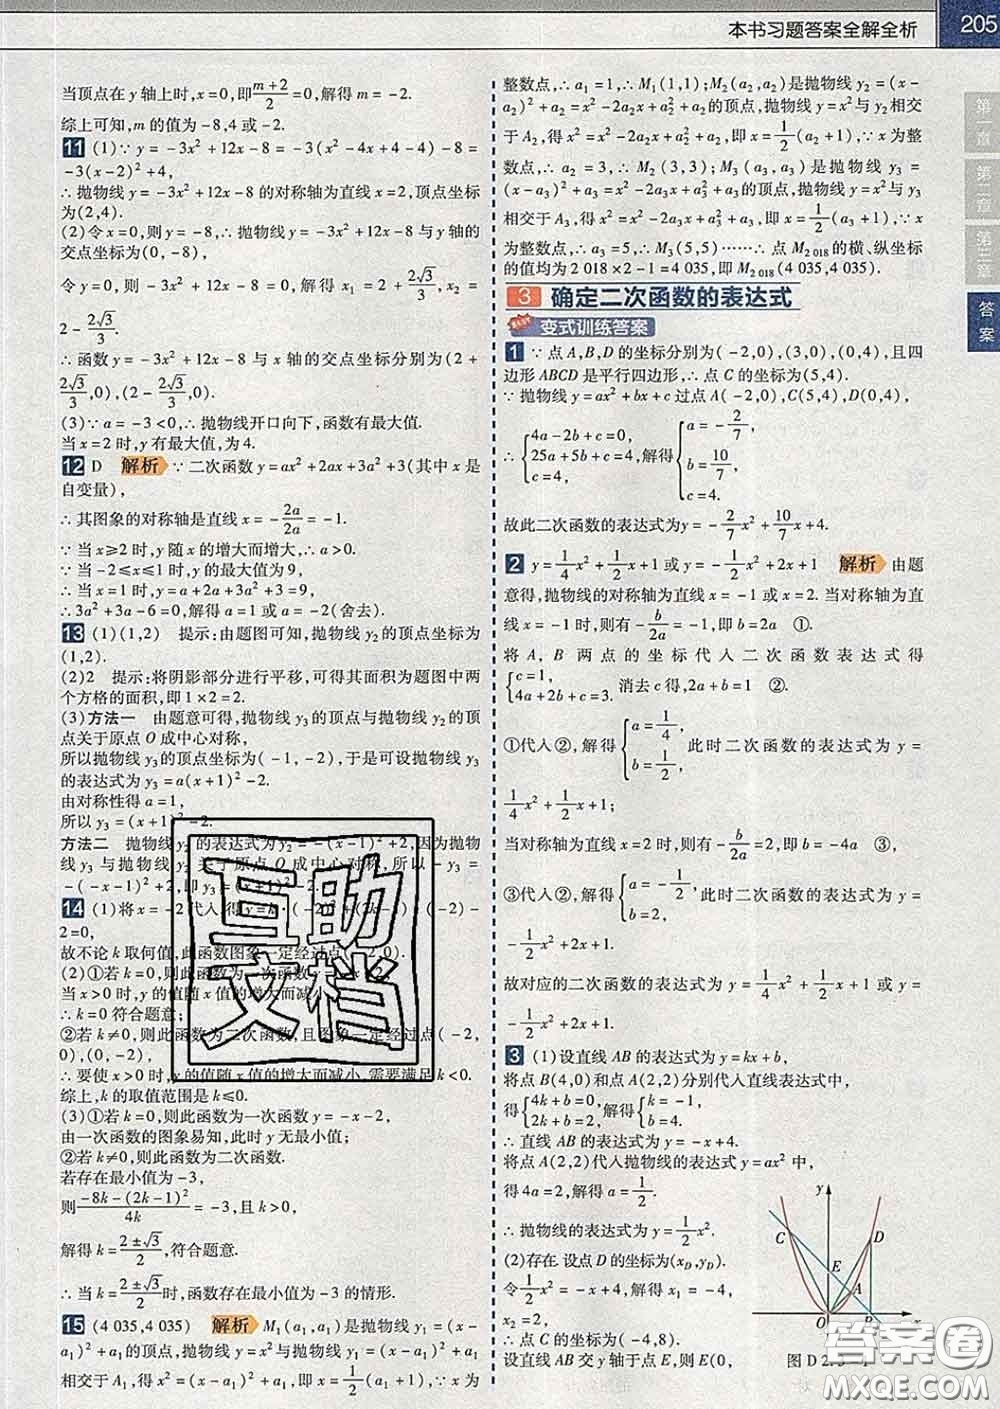 本书习题答案全解全析 205
当顶点在y轴上时,x=0,即(m+2)/2=0,解得m=-2.
综上可知,m的值为-8,4或-2.
11 (1)∵y=-3x²+12x-8=-3(x²-4x+4-4)-8=
-3(x-2)²+4,
∴抛物线y=-3x²+12x-8的对称轴为直线x=2,顶点坐标
为(2,4).
(2)令x=0,则y=-8,∴抛物线y=-3x²+12x-8与y轴的
交点坐标为(0,-8),
令y=0,则-3x²+12x-8=0,解得x₁=2+2√3/3,x₂=
2-2√3/3.
∴函数y=-3x²+12x-8与x轴的交点坐标分别为(2+
2√3/3,0),(2-2√3/3,0).
(3)∵a=-3<0,∴抛物线开口向下,函数有最大值.
当x=2时,y有最大值,为4.
12 D 解析 ∵二次函数y=ax²+2ax+3a²+3(其中x是
自变量),
∴其图象的对称轴是直线x=-2a/2a=-1.
∵当x≥2时,y随x的增大而增大,∴a>0.
∵当-2≤x≤1时,y的最大值为9,
∴当x=1时,y=a+2a+3a²+3=9,
∴3a²+3a-6=0,解得a=1或a=-2(舍去).
13 (1)(1,2) 提示:由题图可知,抛物线y₂的顶点坐标为
(1,2).
(2)2 提示:将阴影部分进行平移,可得其面积为题图中两
个方格的面积,即1×2=2.
(3)方法一 由题意可得,抛物线y₃的顶点与抛物线y₂的顶
点关于原点O成中心对称,
所以抛物线y₃的顶点坐标为(-1,-2),于是可设抛物线y₃
的表达式为y₃=a(x+1)²-2.
由对称性得a=1,
所以y₃=(x+1)²-2.
方法二 抛物线y₂的表达式为y=-(x-1)²+2,因为抛物
线y₃与抛物线y₂关于原点O成中心对称,所以-y₃=
-(-x-1)²+2,即y₃=(x+1)²-2.
14 (1)将x=-2代入,得y=k·(-2)²+(2k-1)·(-2)-
2=0,
故不论k取何值,此函数图象一定经过点(-2,0).
(2)①若k=0,则此函数为一次函数y=-x-2,
当x>0时,y的值随x值的增大而减小,
∴k=0符合题意;
②若k≠0,则此函数为二次函数,且图象一定经过点(-2,
0),(0,-2),
∴要使x>0时,y的值随x值的增大而减小,需要满足k<0.
综上,k的取值范围是k≤0.
(3)①若k=0,则此函数为一次函数y=-x-2,
由一次函数的图象易知,此时y无最小值;
②若k≠0,则此函数为二次函数.
若存在最小值为-3,
则(-8k-(2k-1)²)/4k=-3,且k>0,
解得k=(2±√3)/2,符合题意.
∴当k=(2±√3)/2时,函数存在最小值为-3的情形.
15 (4 035,4 035) 解析 M₁(a₁,a₁)是抛物线y₁=(x-
a₁)²+a₁的顶点,抛物线y=x²与抛物线y₁=(x-a₁)²+a₁
相交于A₁,得x²=x²-2a₁x+a₁²+a₁,即x=1/2(a₁+1),∵x为
整数点,∴a₁=1,∴M₁(1,1);M₂(a₂,a₂)是抛物线y₂=(x-
a₂)²+a₂=x²-2a₂x+a₂²+a₂的顶点,抛物线y=x²与y₂相交
于A₂,得x²=x²-2a₂x+a₂²+a₂,即x=1/2(a₂+1),∵x为整
数点,∴a₂=3,∴M₂(3,3);M₃(a₃,a₃)是抛物线y₃=
(x-a₃)²+a₃=x²-2a₃x+a₃²+a₃的顶点,抛物线y=x²与y₃
相交于A₃,得x²=x²-2a₃x+a₃²+a₃,即x=1/2(a₃+1),∵x
为整数点,∴a₃=5,∴M₃(5,5)……∴点M₂₀₁₈的横、纵坐标
的值均为2 018×2-1=4 035,即M₂₀₁₈(4 035,4 035).
3 确定二次函数的表达式
变式训练答案
1 ∵点A,B,D的坐标分别为(-2,0),(3,0),(0,4),且四
边形ABCD是平行四边形,∴点C的坐标为(5,4).
∵抛物线y=ax²+bx+c过点A(-2,0),C(5,4),D(0,4),
∴{4a-2b+c=0, 25a+5b+c=4, c=4, 解得{a=-2/7, b=10/7, c=4.
故此二次函数的表达式为y=-2/7x²+10/7x+4.
2 y=1/4x²+1/2x+1或y=-1/2x²+2x+1 解析 由题
意得,抛物线的对称轴为直线x=-1或x=2.当对称轴为直
线x=-1时,则有-b/2a=-1,即b=2a ①.
将A,B两点的坐标代入二次函数表达式得
{c=1, 4a+2b+c=3, 消去c得,2a+b=1 ②.
①代入②,解得{a=1/4, b=1/2, 此时二次函数的表达式为y=
1/4x²+1/2x+1;
当对称轴为直线x=2时,则有-b/2a=2,即b=-4a ③,
③代入②,解得{a=-1/2, b=2, 此时二次函数的表达式为y=
-1/2x²+2x+1.
故对应的二次函数的表达式为y=1/4x²+1/2x+1或y=
-1/2x²+2x+1.
3 (1)设直线AB的表达式为y=kx+b,
将点B(4,0)和点A(2,2)分别代入直线表达式中,
得{4k+b=0, 2k+b=2, 解得{k=-1, b=4.
∴直线AB的表达式为y=-x+4.
将点A(2,2)代入抛物线的表达式y=ax²中,
得4a=2,解得a=1/2.
∴抛物线的表达式为y=1/2x².
(2)存在.设点D的坐标为(x_D,y_D).
令1/2x²=-x+4,解得x₁=-4,
x₂=2,
∴点C的坐标为(-4,8).
设直线AB交y轴于点E,则E(0,
y
C
D
E
A
O
B
x
图D 2.3-1
第一章
第二章
第三章
答案
互助
文档
答案圈
MXQE.COM